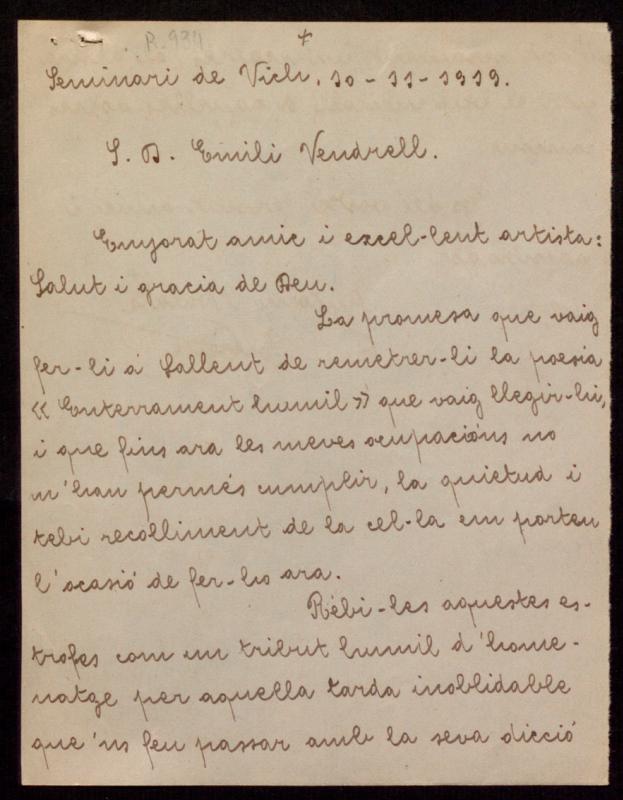 R. 934
+
Seminari de Vich, 10-11-1919.
S. D. Emili Vendrell.
Enyorat amic i excel-lent artista:
Salut i gracia de Deu.
La promesa que vaig
fer-li á Sallent de remetrer-li la poesia
« Enterrament humil » que vaig llegir-li,
i que fins ara les meves ocupacións no
m'han permés cumplir, la quietud i
tebi recolliment de la cel-la em porten
l'ocasió de fer-ho ara.
Rébi-les aquestes es-
trofes com un tribut humil d'home-
natge per aquella tarda inoblidable
que 'ns feu passar amb la seva dicció